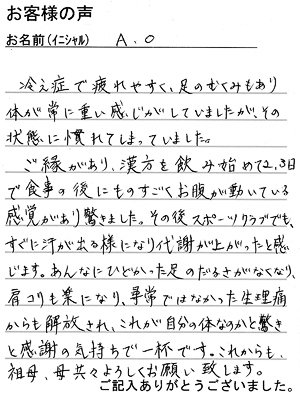 お客様の声
お名前(イニシャル) A.O
冷え症で疲れやすく、足のむくみもあり
体が常に重い感じがしていましたが、その
状態に慣れてしまっていました。
ご縁があり、漢方を飲み始めて2,3日
で食事の後にものすごくお腹が動いている
感覚があり驚きました。その後スポーツクラブでも、
すぐに汗が出る様になり代謝が上がったと感
じます。あんなにひどかった足のだるさがなくなり、
肩コリも楽になり、尋常ではなかった生理痛
からも解放され、これが自分の体なのかと驚き
と感謝の気持ちで一杯です。これからも、
祖母、母共々よろしくお願い致します。
ご記入ありがとうございました。